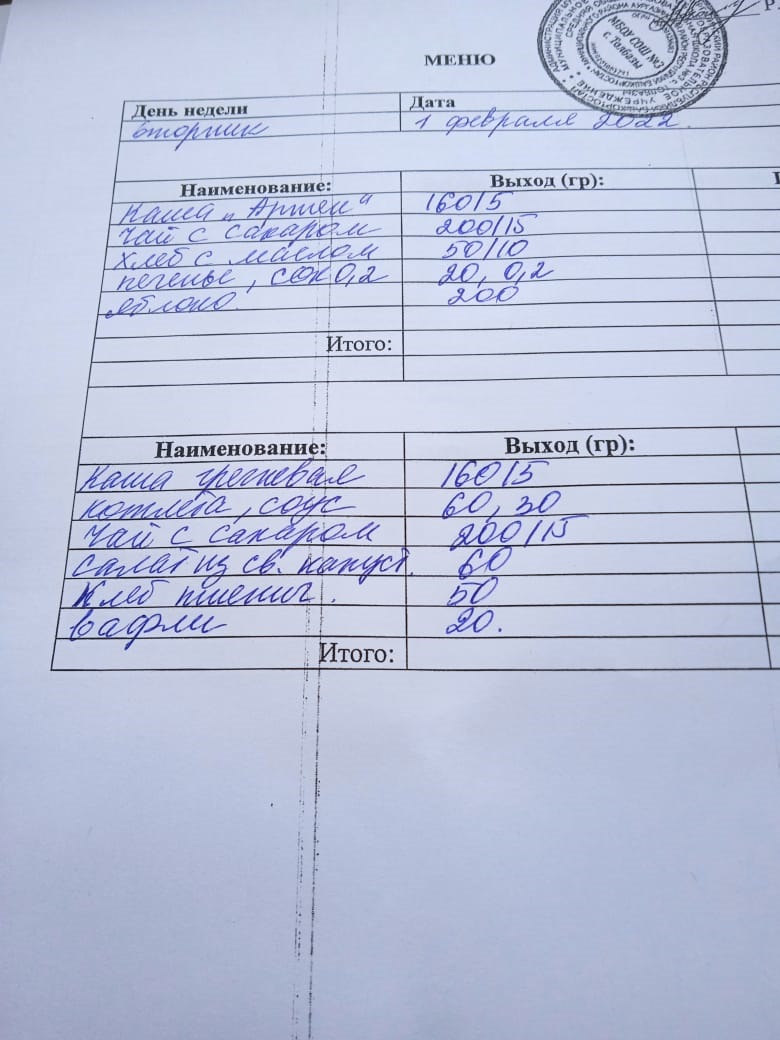 МЕНЮ
МБОУ СОШ №3
с. Толбазы
День недели Дата
вторник 1 февраля 2022.
Наименование: Выход (гр):
Каша „Артек" 160/5
Чай с сахаром 200/15
Хлеб с маслом 50/10
печенье, сок 0,2 20, 0,2
яблоко. 200
Итого:
Наименование: Выход (гр):
Каша гречневая 160/5
котлета, соус 60, 30
Чай с сахаром 200/15
салат из св. капуст. 60
Хлеб пшенич. 50
вафли 20.
Итого: